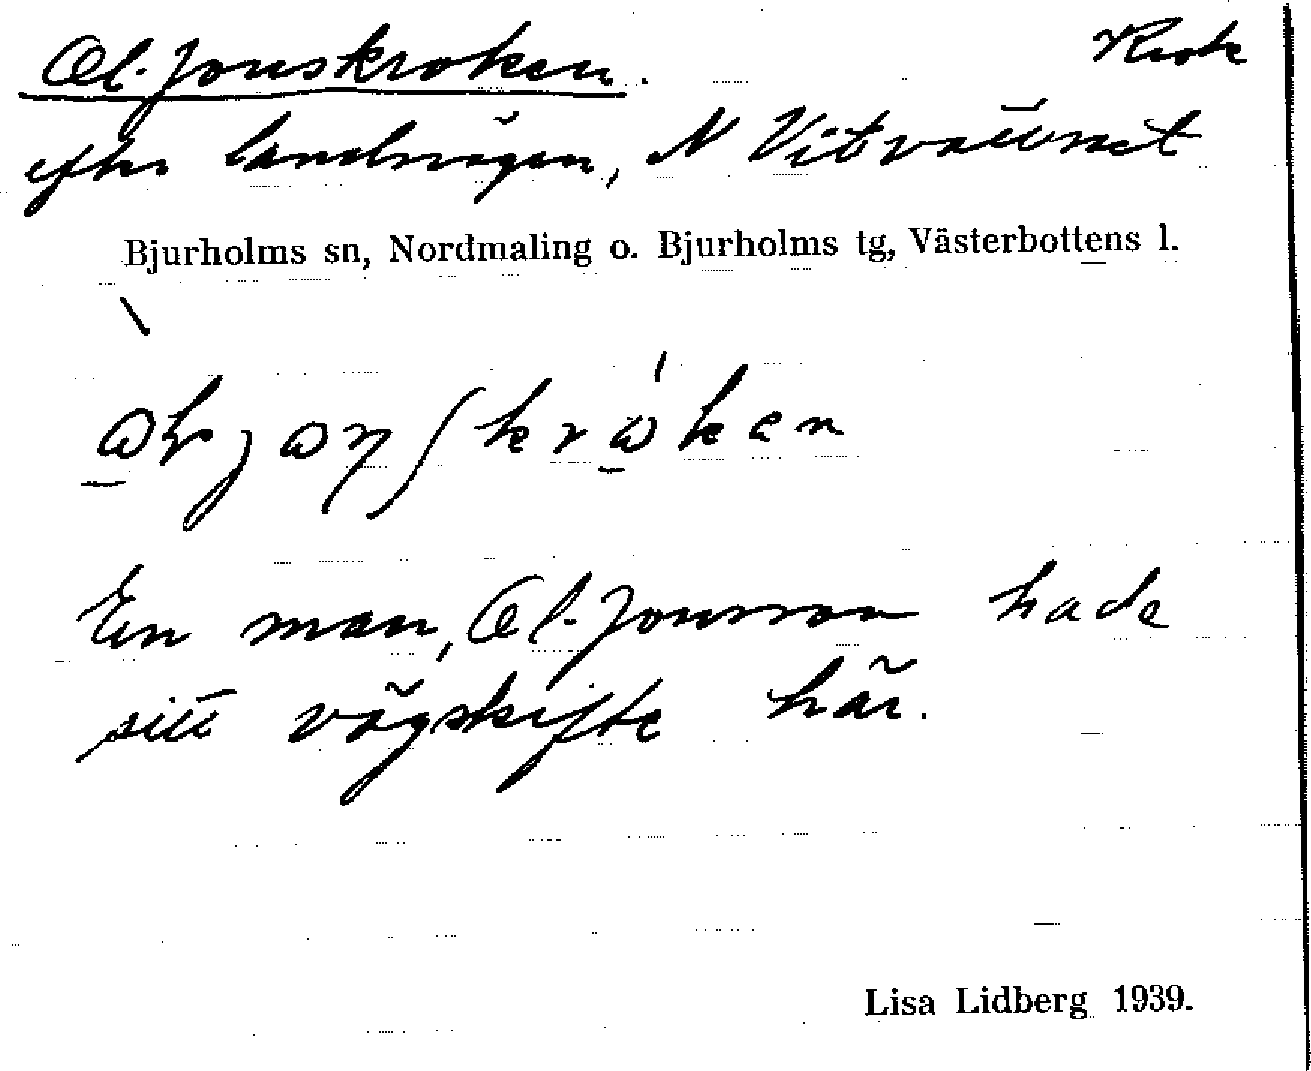 Ol-Jonskroken. Krok
efter landsvägen, N Vitvattnet
Bjurholms sn, Nordmaling o. Bjurholms tg, Västerbottens l.
En man, Ol-Jonsson hade
sitt vägskifte här.
Lisa Lidberg 1939.